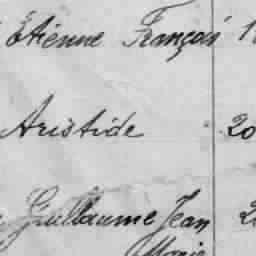 Etienne François 1
Aristide 20
Guillaume Jean 2
Marie